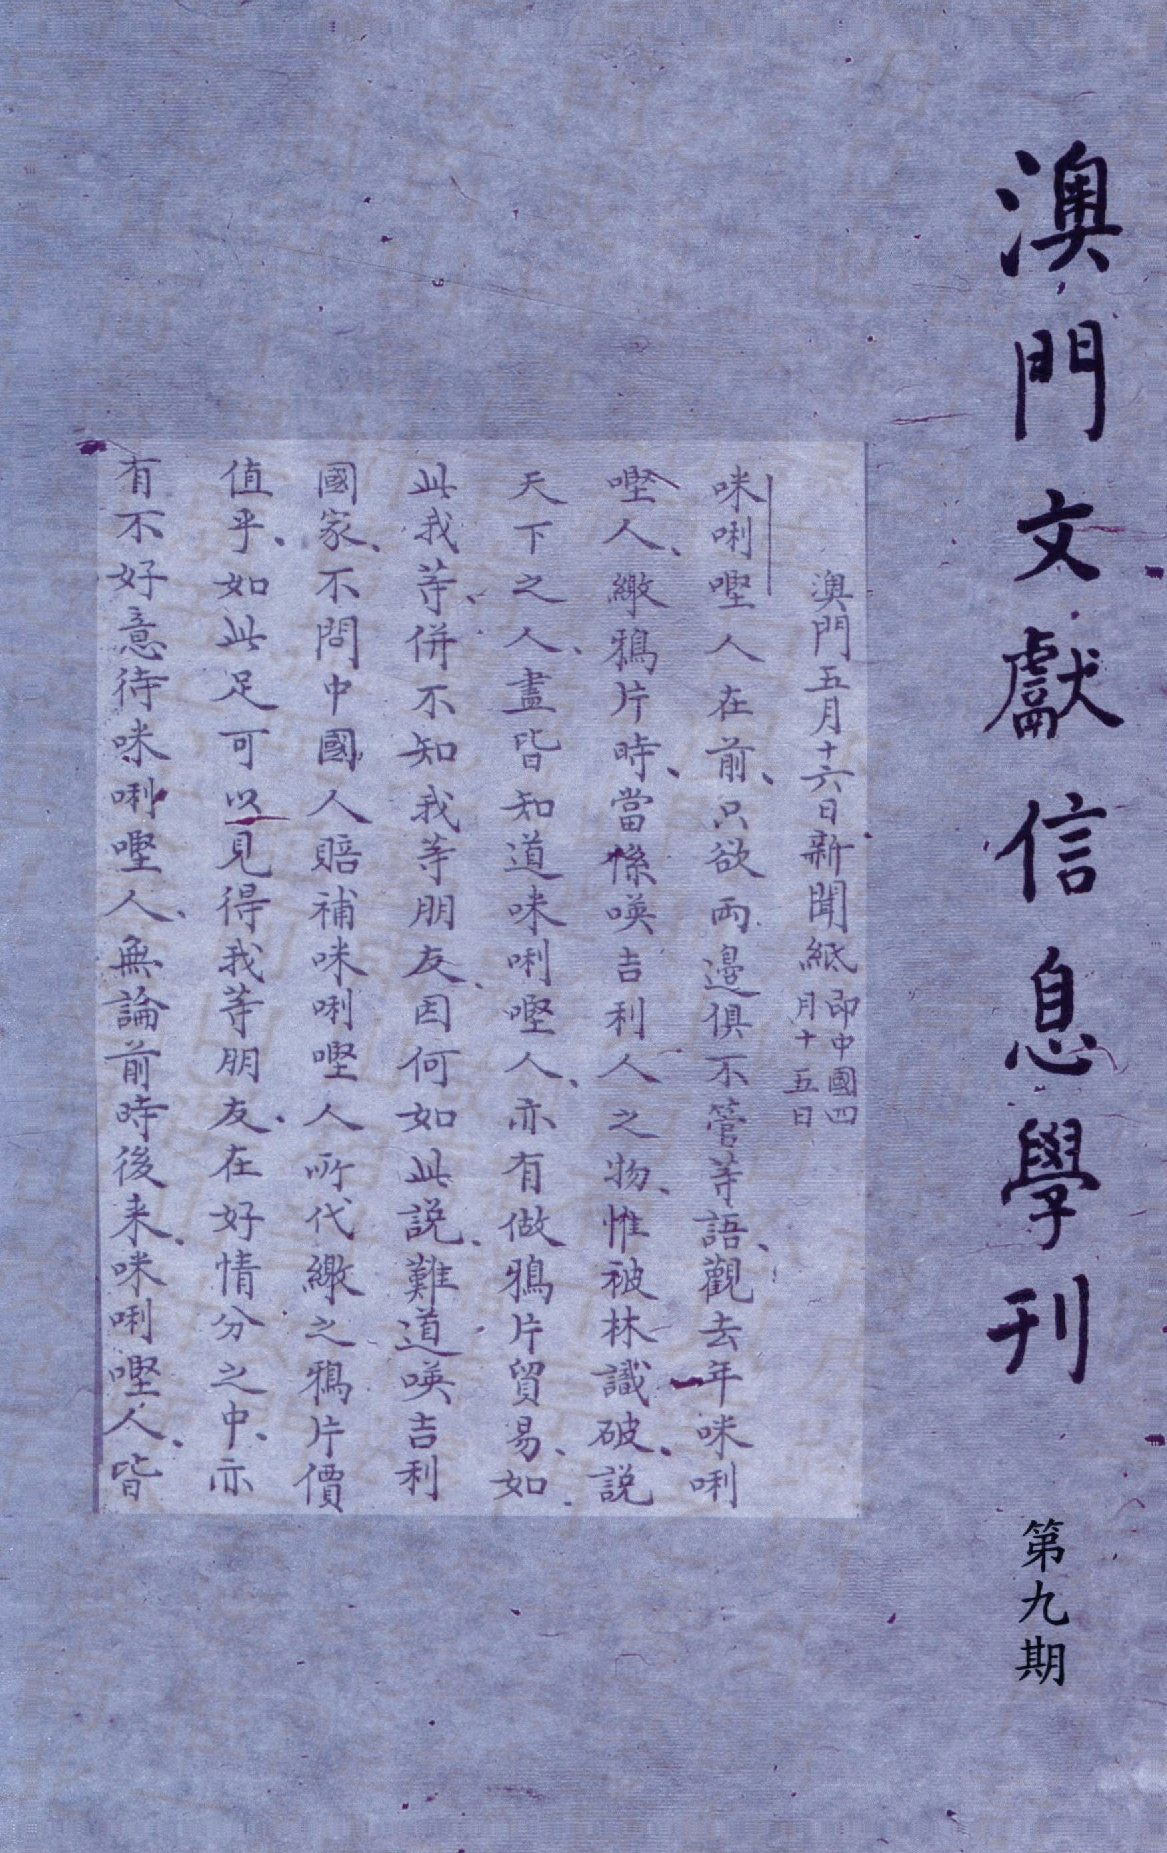 澳門文獻信息學刊
第九期
澳門五月十六日新聞紙 即中國四月十五日
咪唎㘄人在前、只欲兩邊俱不管等語、觀去年咪唎
㘄人、繳鴉片時、當係𠸄吉利人之物、惟被林識破、說
天下之人、盡皆知道咪唎㘄人、亦有做鴉片貿易、如
此我等、併不知我等朋友、因何如此說、難道𠸄吉利
國家、不問中國人賠補咪唎㘄人所代繳之鴉片價
值乎、如此足可以見得我等朋友、在好情分之中、亦
有不好意待咪唎㘄人、無論前時後来、咪唎㘄人、皆